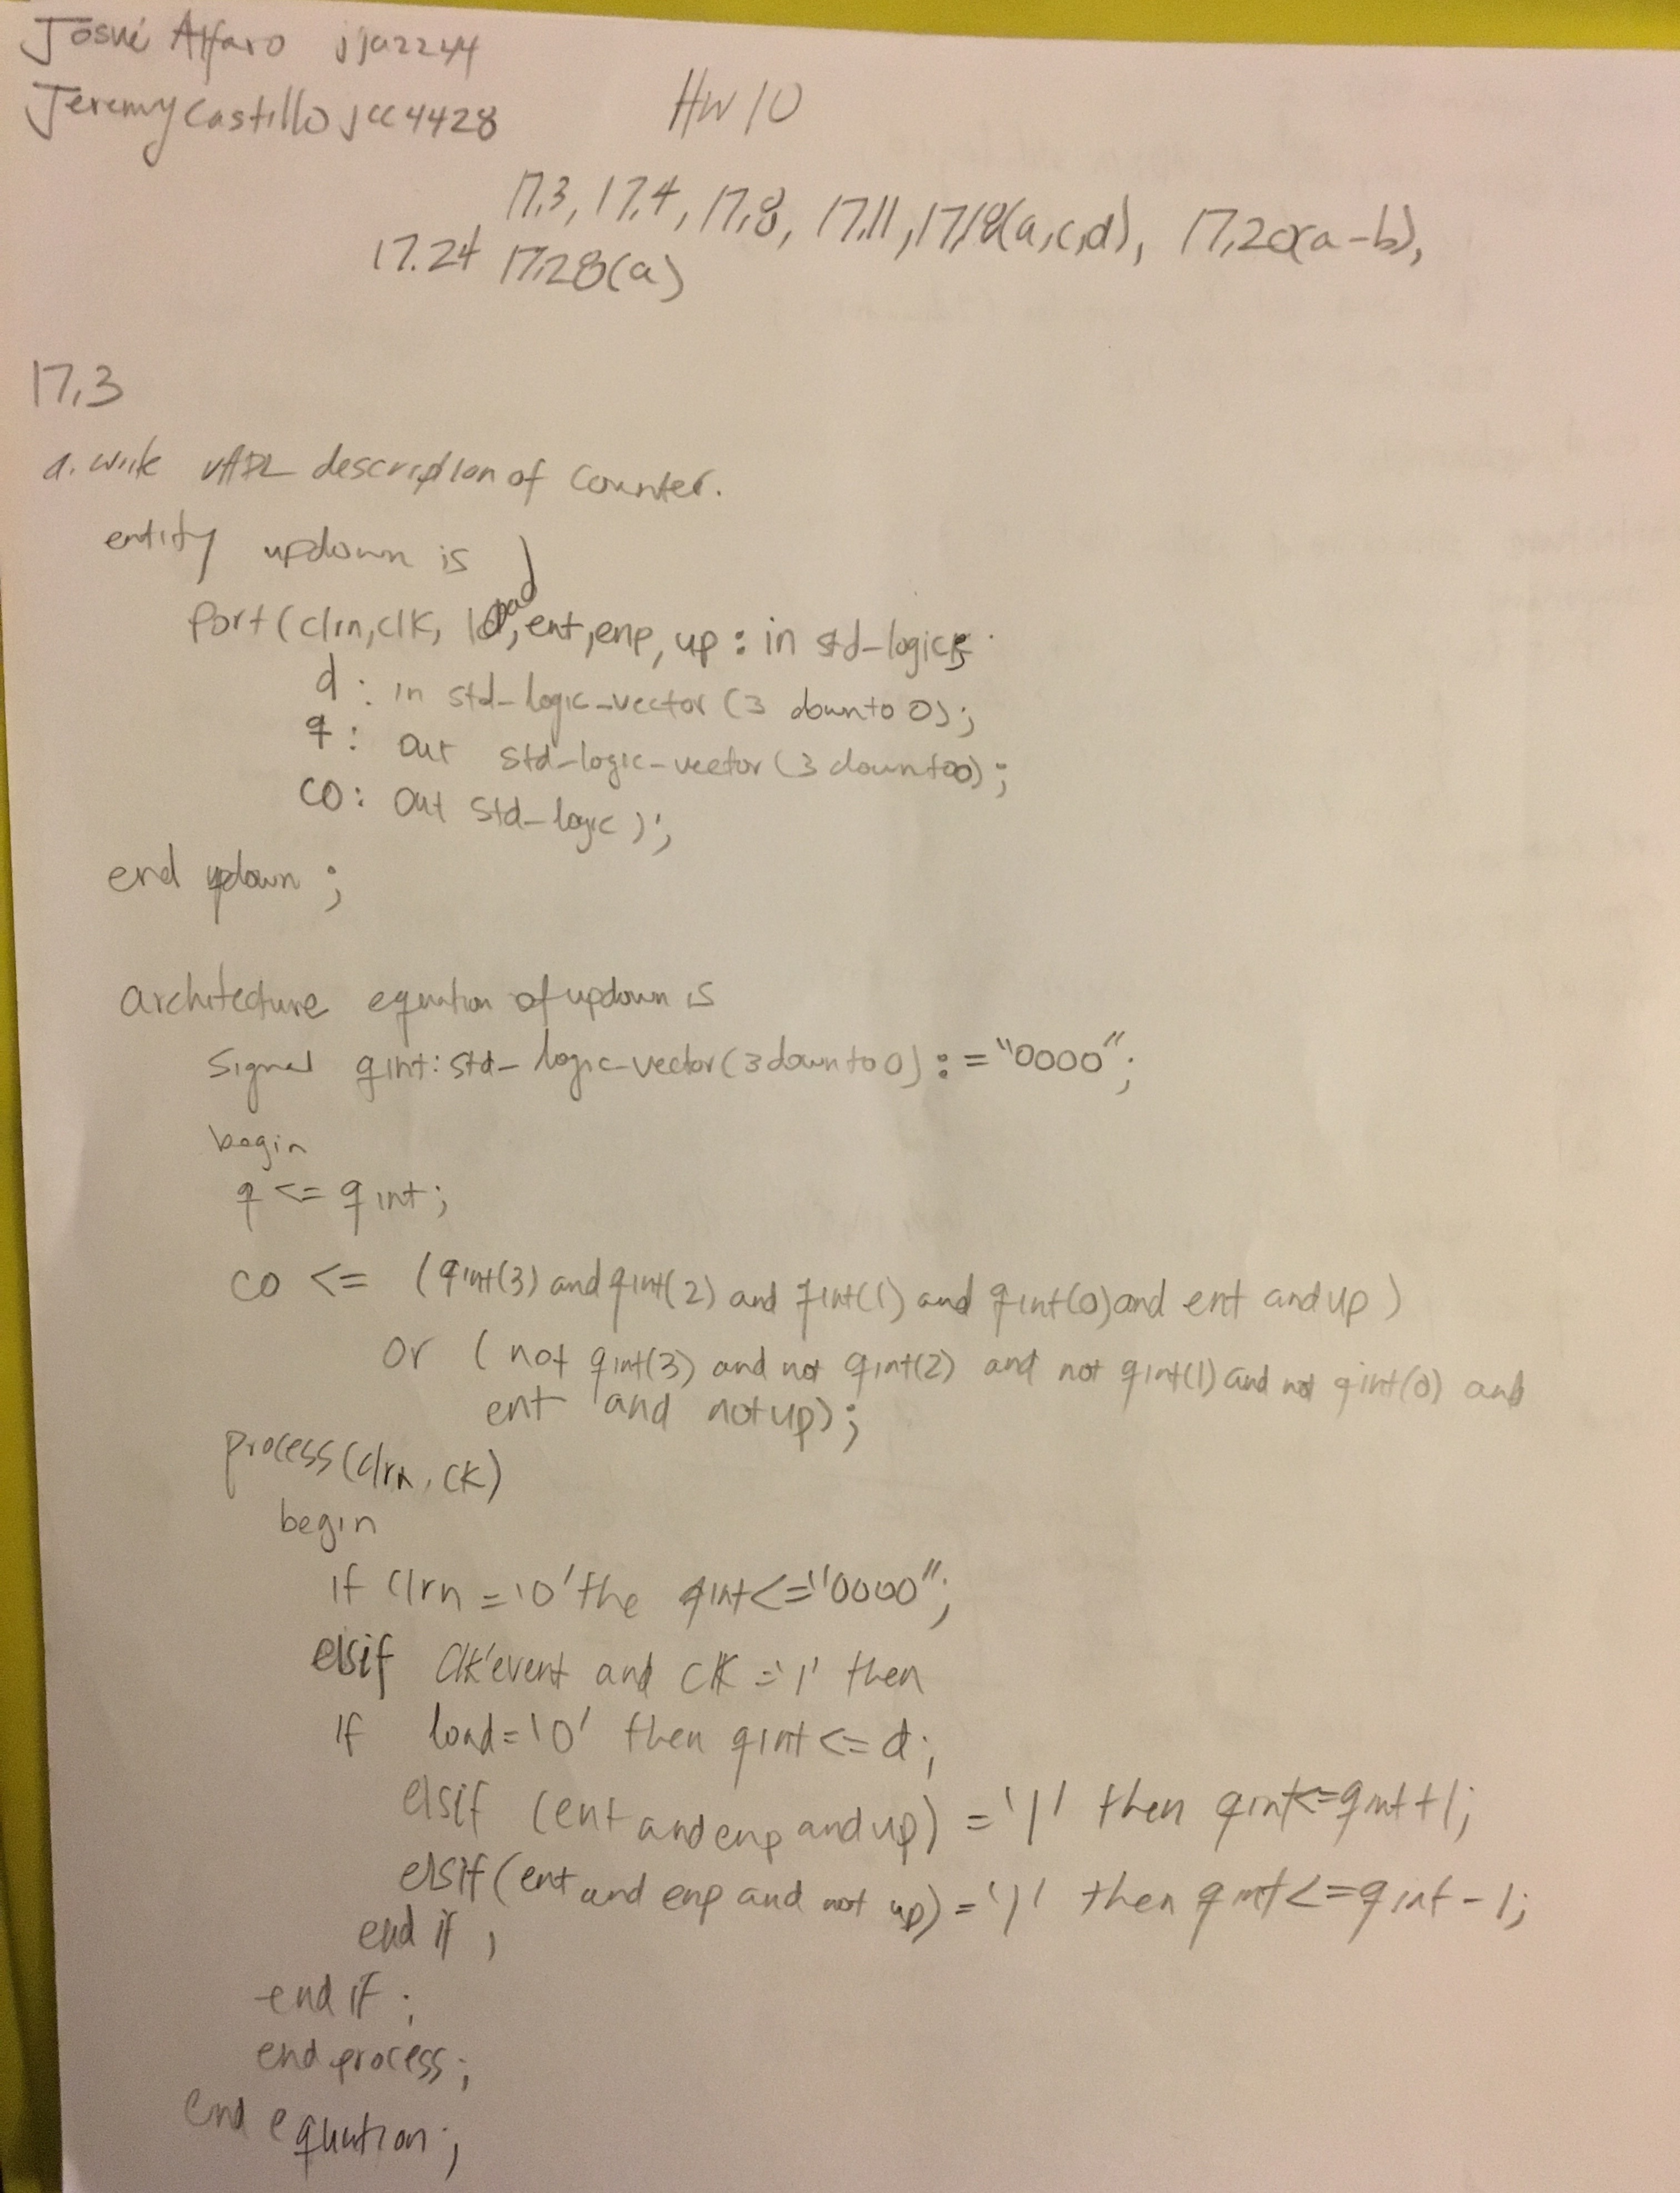 Josué Alfaro jja2244
Jeremy Castillo jcc4428
HW 10
17.3, 17.4, 17.8, 17.11, 17.18(a,c,d), 17.20(a-b),
17.24 17.28(a)
17.3
a. write VHDL description of counter.
entity updown is
port(clrn,clk, load,ent,enp,up : in std-logic;
d : in std-logic-vector (3 downto 0);
q : out std-logic-vector (3 downto 0);
co : out std-logic );
end updown ;
architecture equation of updown is
signal qint: std-logic-vector(3 downto 0) := "0000";
begin
q <= qint;
co <= (qint(3) and qint(2) and qint(1) and qint(0) and ent and up )
or ( not qint(3) and not qint(2) and not qint(1) and not qint(0) and
ent and not up);
process(clrn, ck)
begin
if clrn = '0' the qint<="0000";
elsif clk'event and clk = '1' then
if load='0' then qint <= d;
elsif (ent and enp and up) = '1' then qint<=qint+1;
elsif (ent and enp and not up) = '1' then qint<=qint-1;
end if ;
end if ;
end process;
end equation;